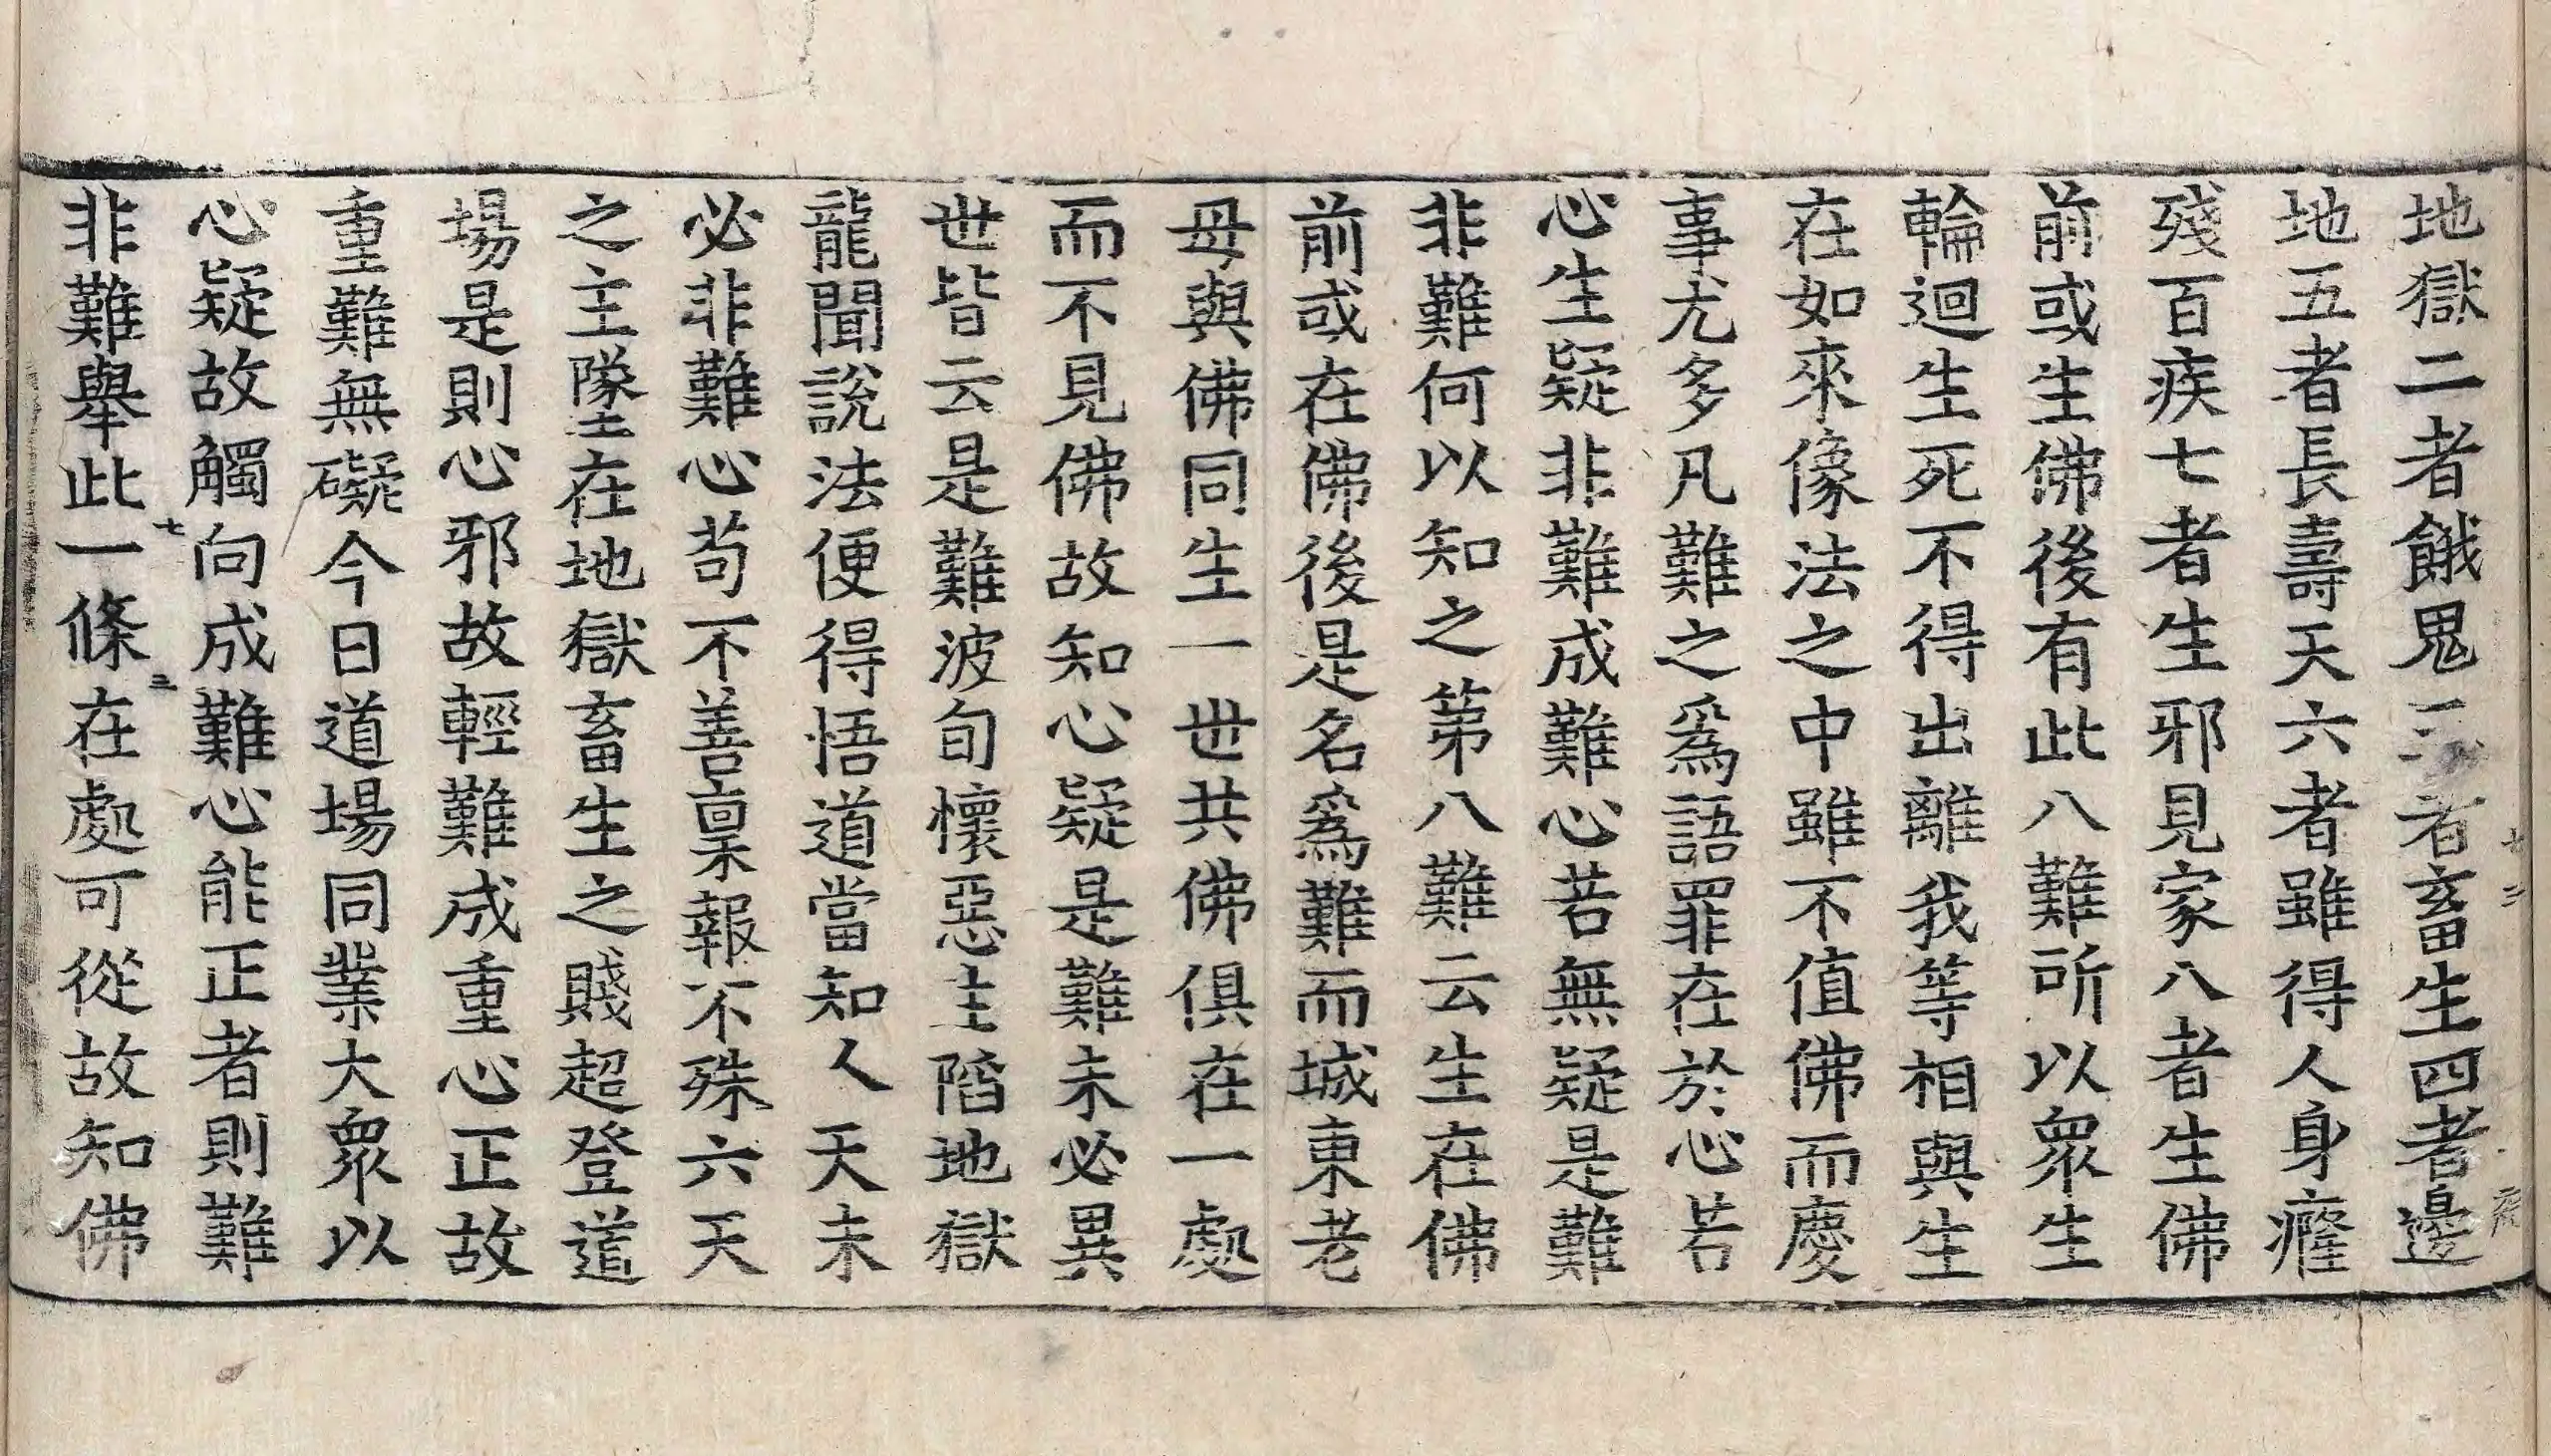 地獄二者餓鬼三者畜生四者邊
地五者長壽天六者雖得人身癃
殘百疾七者生邪見家八者生佛
前或生佛後有此八難所以衆生
輪迴生死不得出離我等相與生
在如來像法之中雖不值佛而慶
事尤多凡難之爲語罪在於心若
心生疑非難成難心若無疑是難
非難何以知之第八難云生在佛
前或在佛後是名爲難而城東老
母與佛同生一世共佛俱在一處
而不見佛故知心疑是難未必異
世皆云是難波旬懷惡生陷地獄
龍聞說法便得悟道當知人天未
必非難心苟不善稟報不殊六天
之主墜在地獄畜生之賤超登道
場是則心邪故輕難成重心正故
重難無礙今日道場同業大衆以
心疑故觸向成難心能正者則難
非難舉此一條在處可從故知佛
七 三